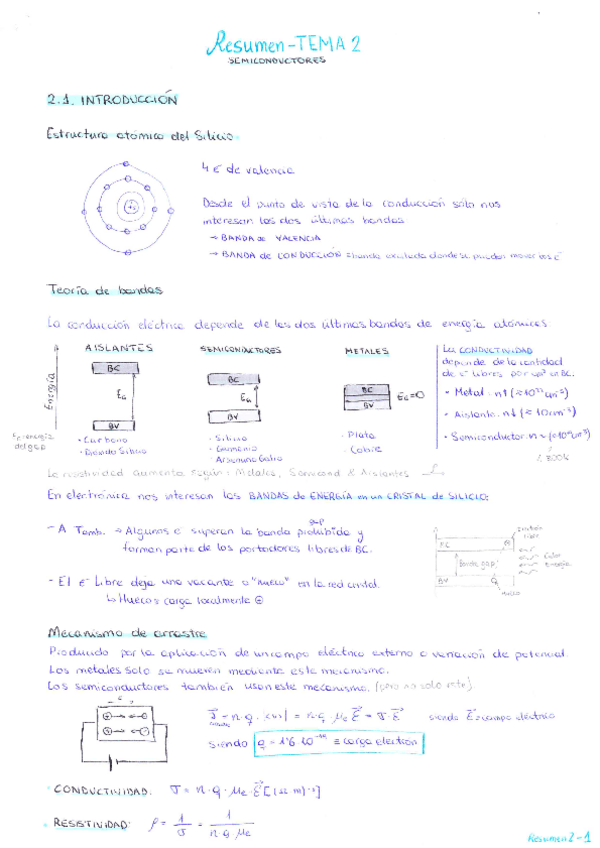 Resumen-TEMA 2
SEMICONDUCTORES
2.1. INTRODUCCIÓN
Estructura atómica del Silicio
4 e⁻ de valencia
Desde el punto de vista de la conducción solo nos
interesan las dos últimas bandas
→ BANDA de VALENCIA
→ BANDA de CONDUCCIÓN = banda excitada donde se pueden mover los e⁻
Teoría de bandas
La conducción eléctrica depende de las dos últimas bandas de energía atómicas
AISLANTES SEMICONDUCTORES METALES
Energía
BC
EG
BV
BC
EG
BV
BC
BV
EG=0
EG=energía
del gap
· Carbono
· Dióxido Silicio
· Silicio
· Germanio
· Arseniuro Galio
· Plata
· Cobre
La CONDUCTIVIDAD
depende de la cantidad
de e⁻ libres por cm³ en BC.
· Metal: n↑
· Aislante: n↓
· Semiconductor: n
300K
La resistividad aumenta según: Metales, Semicond. & Aislantes
En electrónica nos interesan las BANDAS de ENERGÍA en un CRISTAL de SILICIO:
- A Tamb. → Algunos e⁻ superan la banda prohibida y
gap
forman parte de los portadores libres de BC.
- El e⁻ libre deja una vacante o "hueco" en la red cristal.
↳ Hueco = carga localmente ⊕
BC
Banda gap
BV
electrón
libre
Calor
Energía
Hueco
Mecanismo de arrastre
Producido por la aplicación de un campo eléctrico externo o variación de potencial.
Los metales solo se mueven mediante este mecanismo.
Los semiconductores también usan este mecanismo. (pero no solo este)
siendo E⃗=campo eléctrico
siendo q = 1'6·10⁻¹⁹ ≡ carga electrón
· CONDUCTIVIDAD: σ = n·q·μe·E⃗ [(Ω m)⁻¹]
· RESISTIVIDAD: ρ = 1/σ = 1/(n q μe)
Resumen 2-1